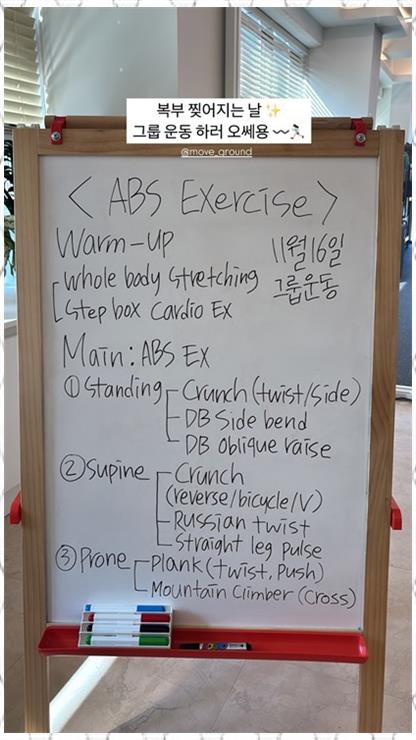 복부 찢어지는 날✨
그룹 운동 하러 오쎄용 〰️🏃🏻
@move_ground
< ABS Exercise >
Warm-up
11월16일
Whole body Stretching
그룹운동
Step box Cardio Ex
Main: ABS EX
① Standing Crunch (twist/side)
DB Side bend
DB oblique raise
② Supine Crunch
(reverse/bicycle/V)
Russian twist
Straight leg pulse
③ Prone Plank (twist, push)
Mountain Climber (Cross)